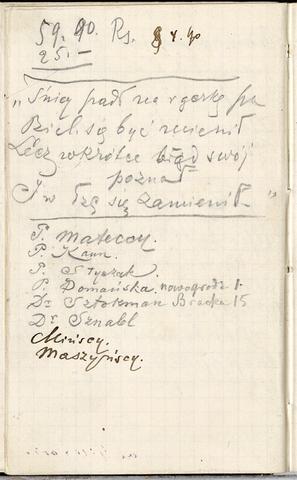 59.90. Rs. 8 4. 90
25.—
„Śnieg padł na górkę
Bielszą być mienił
Lecz wkrótce błąd swój
poznał
I w łzę się zamienił."
P. Mateccy.
P. Kaun.
P. Styczak.
P. Domańska. nowogrodz 1.
Dr Sztokman Bracka 15
Dr Sznabl
Mińscy.
Maszyńscy.